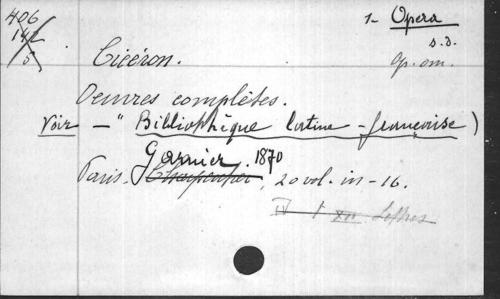 406
142
5
1- Opera
s.d.
Op. om.
Cicéron.
Oeuvres complètes.
Voir — " Bibliothèque latine-française)
Garnier. 1870
Paris. Charpentier, 20 vol. in-16.
IV 1 XII Lettres